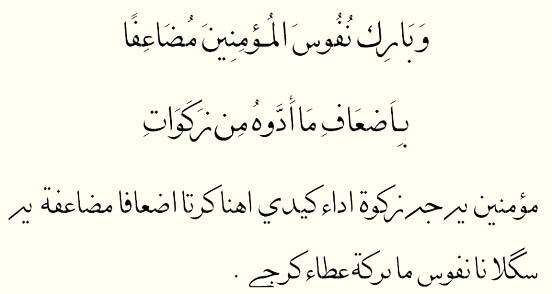 وَبَارِك نُفُوسَ المُؤمِنِينَ مُضَاعِفًا
بِاَضعَافِ مَا أَدَّوهُ مِن زَكَوَاتِ
مؤمنين يه جه زكوة اداء كيدي اهنا كرتا اضعافا مضاعفة يه
سگلا نا نفوس ما بركة عطاء كرجے .